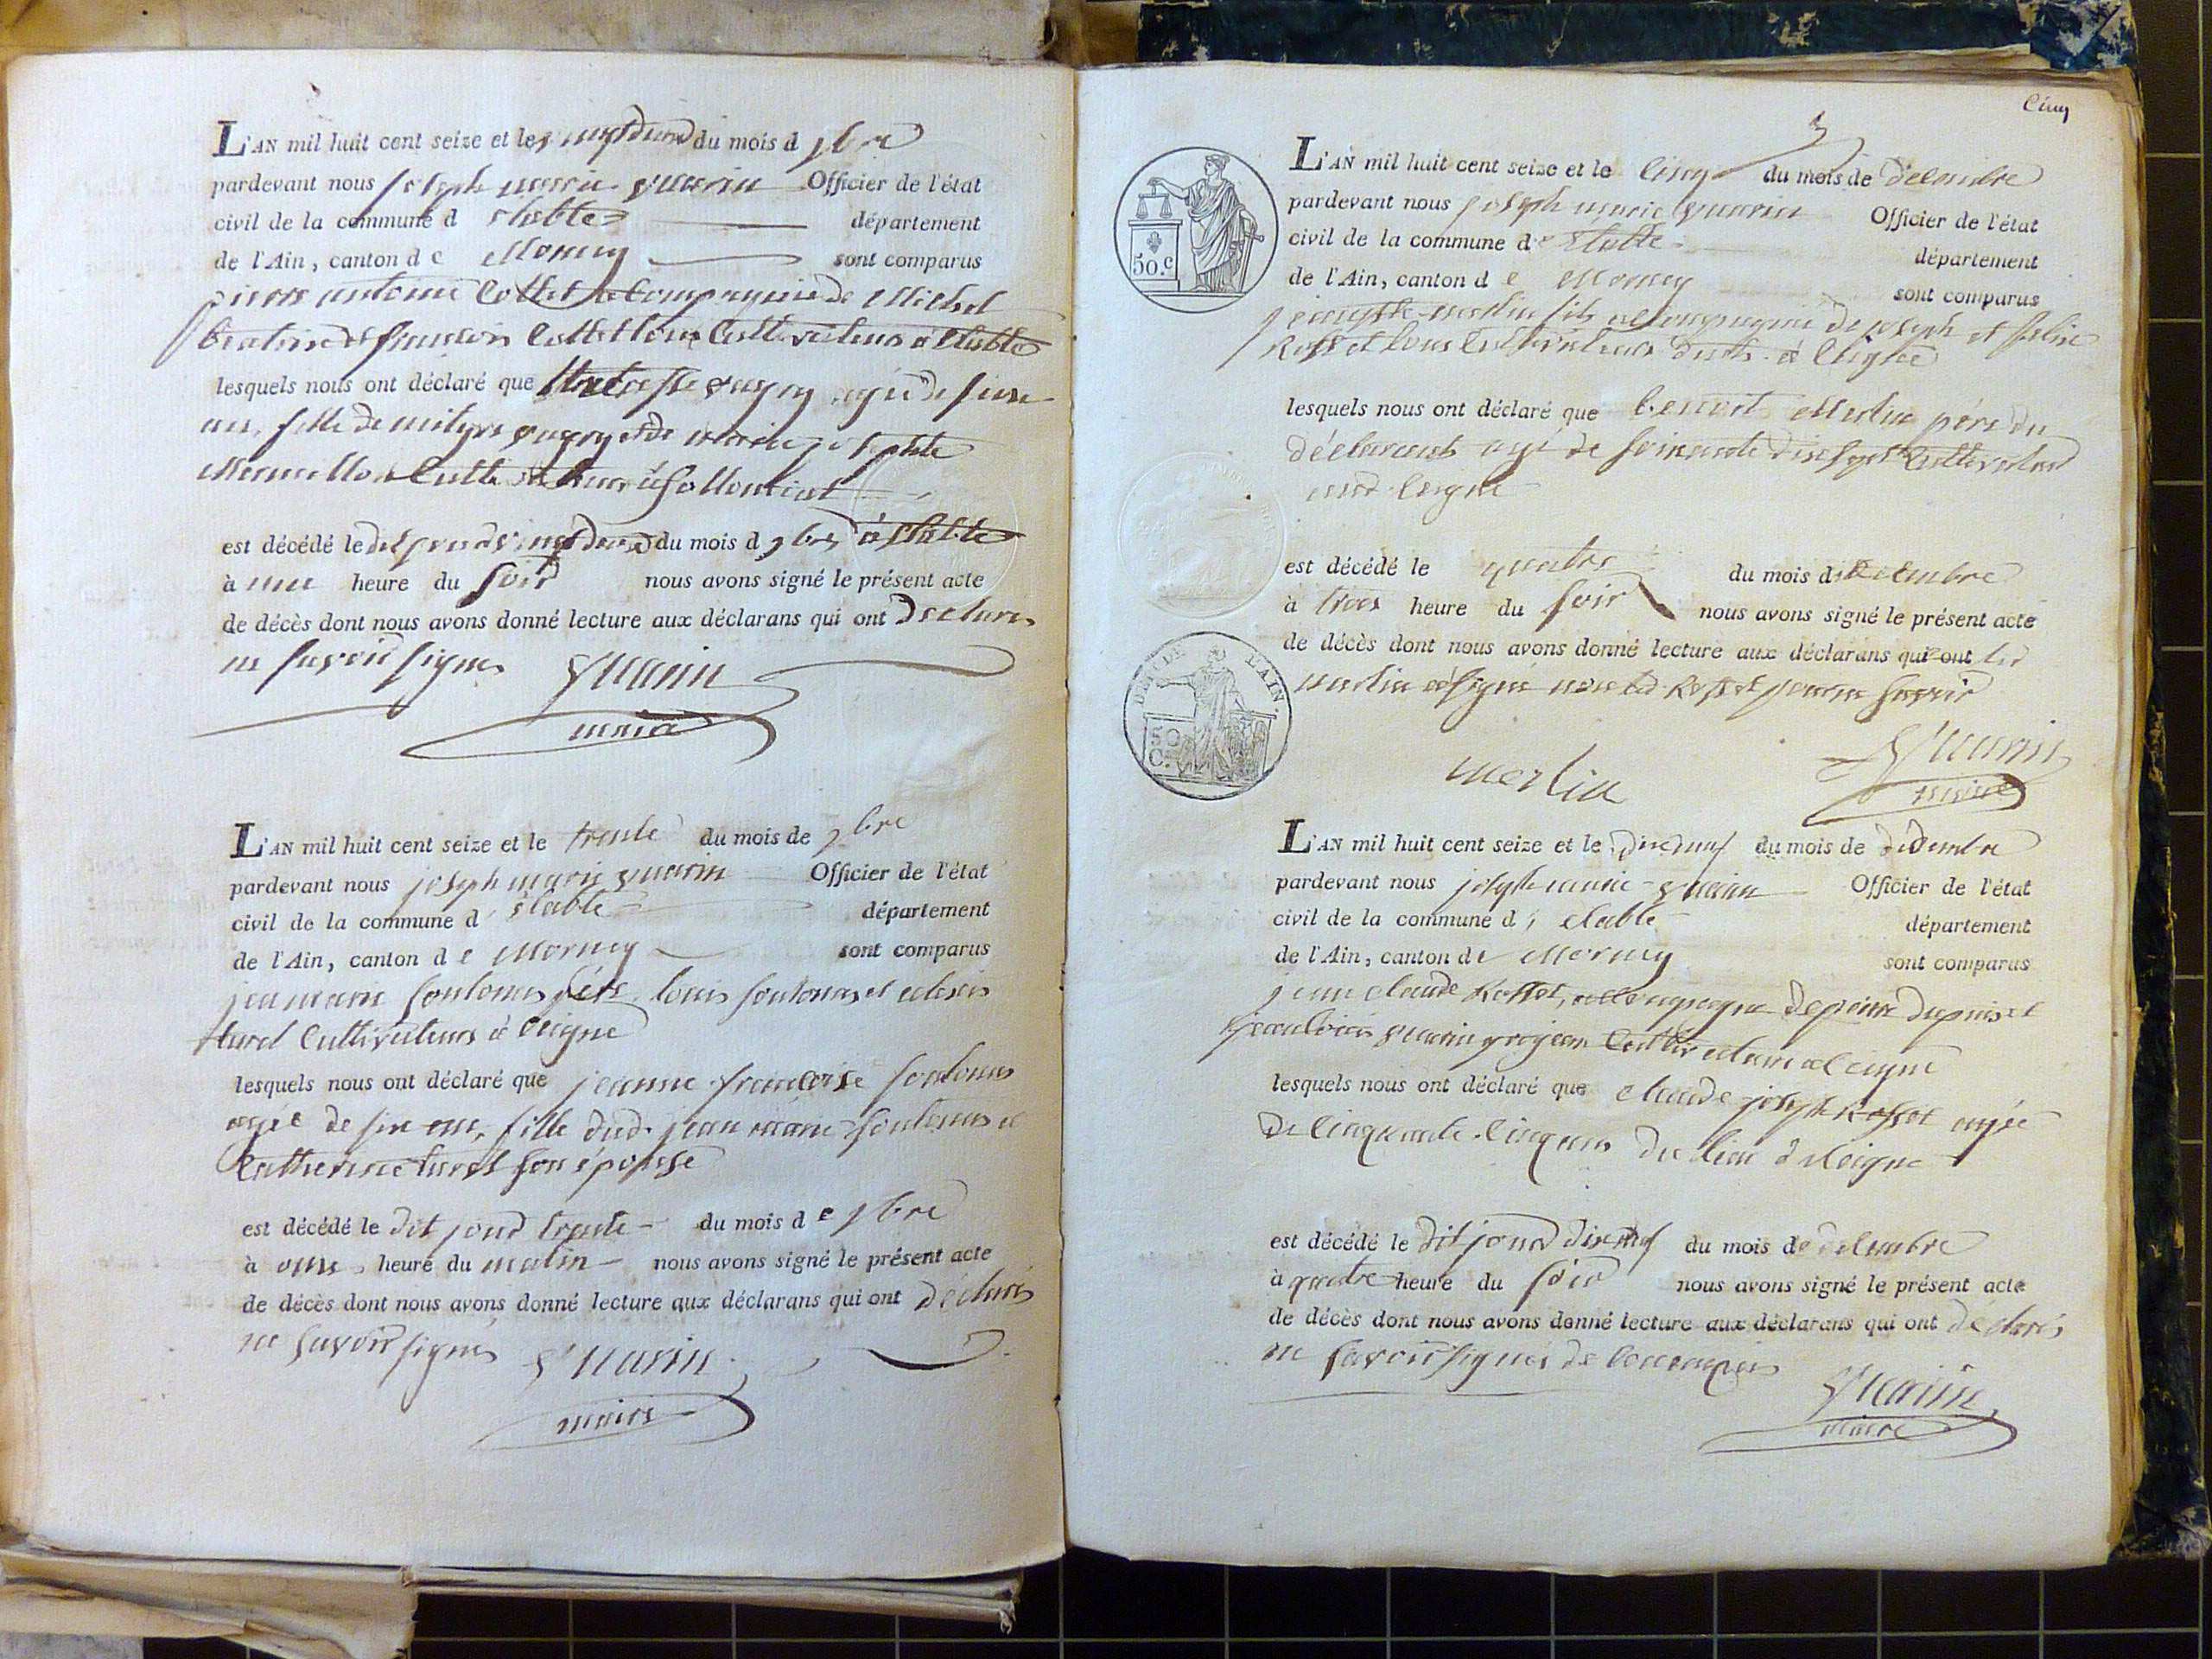 L'AN mil huit cent seize et le vingt deux du mois d 9bre
pardevant nous joseph marie guarin Officier de l'état
civil de la commune d étables département
de l'Ain, canton de Mornay sont comparus
pierre antoine Collet accompagnie de Michel
et françois Collet tous Cultivateurs à Etables
lesquels nous ont déclaré que agée de
ans, fille de et de marie josephte
est décédé le dit jour vingt deux du mois d 9bre à Etables
à une heure du soir nous avons signé le présent acte
de décès dont nous avons donné lecture aux déclarans qui ont déclarés
ne savoir signer guarin
maire
L'AN mil huit cent seize et le trente du mois de 9bre
pardevant nous joseph marie guarin Officier de l'état
civil de la commune d étable département
de l'Ain, canton de Mornay sont comparus
jean marie fontenas louis fontenas et
turel Cultivateurs à Ceigne
lesquels nous ont déclaré que jeanne françoise fontenas
agée de six ans, fille dud. jean marie fontenas et
Catherine turel son épouse
est décédé le dit jour trente du mois de 9bre
à onze heure du matin nous avons signé le présent acte
de décès dont nous avons donné lecture aux déclarans qui ont déclarés
ne savoir signer guarin
maire
Cinq
L'AN mil huit cent seize et le cinq du mois de décembre
pardevant nous joseph marie guarin Officier de l'état
civil de la commune de Etable département
de l'Ain, canton de Mornay sont comparus
merlin fils accompagné de joseph et
Rosset tous Cultivateurs à Ceigne
lesquels nous ont déclaré que benoit Merlin père du
déclarant agé de soixante dix sept Cultivateur
Ceigne
est décédé le quatre du mois de décembre
à trois heure du soir nous avons signé le présent acte
de décès dont nous avons donné lecture aux déclarans qui ont led
merlin a signé non led Rosset pour ne savoir
merlin guarin
maire
L'AN mil huit cent seize et le dix neuf du mois de décembre
pardevant nous joseph marie guarin Officier de l'état
civil de la commune d' étable département
de l'Ain, canton de Mornay sont comparus
jean claude Rosset, accompagne de pierre dupuis et
jean louis guarin grosjean Cultivateurs a Ceigne
lesquels nous ont déclaré que claude joseph Rosset agée
de cinquante cinq ans du lieu de Ceigne
est décédé le dit jour dix neuf du mois de décembre
à quatre heure du soir nous avons signé le présent acte
de décès dont nous avons donné lecture aux déclarans qui ont déclarés
ne savoir signer de
guarin
maire
50.c
DÉP. DE L'AIN.
50
C.